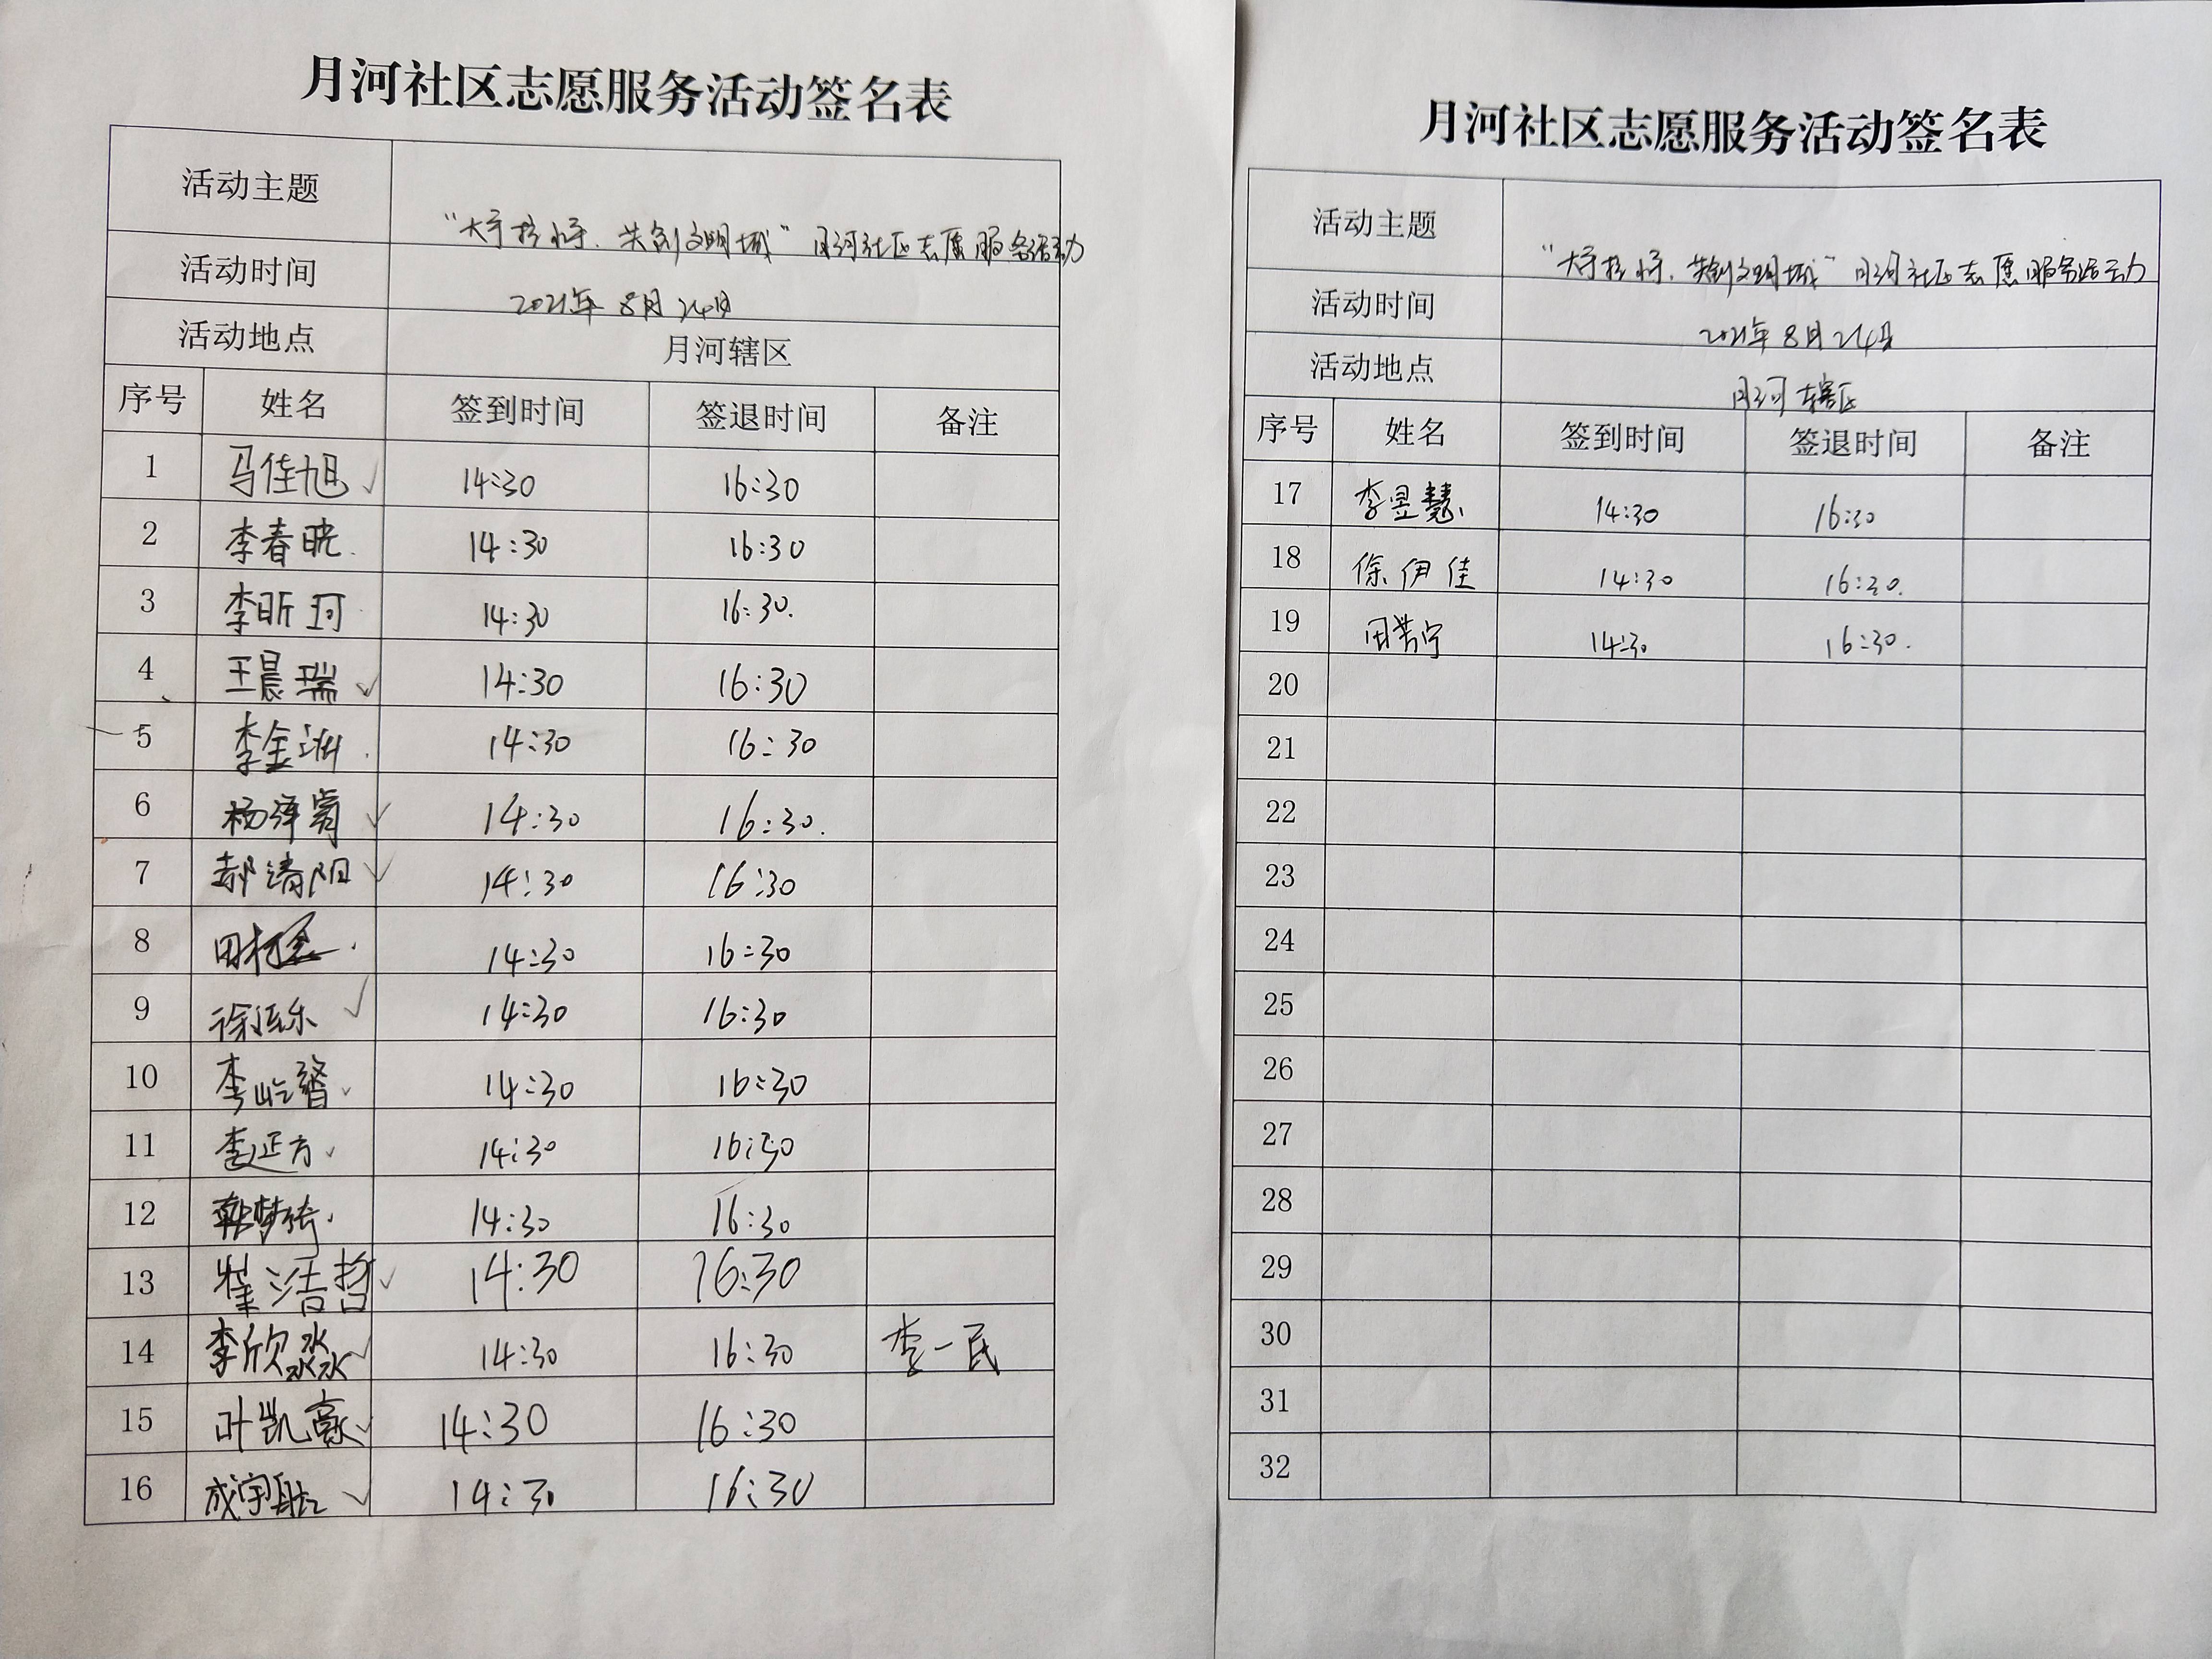 月河社区志愿服务活动签名表
活动主题 “大手拉小手，共创文明城”月河社区志愿服务活动
活动时间 2021年8月24日
活动地点 月河辖区
序号 姓名 签到时间 签退时间 备注
1 马佳旭 14:30 16:30
2 李春晓 14:30 16:30
3 李昕珂 14:30 16:30.
4 王晨瑞 14:30 16:30
5 李金洲 14:30 16:30
6 杨泽 14:30 16:30.
7 郝清阳 14:30 16:30
8 田 14:30 16:30
9 徐 14:30 16:30
10 李屹 14:30 16:30
11 李延方 14:30 16:30
12 韩梦绮 14:30 16:30
13 崔洁哲 14:30 16:30
14 李欣淼 14:30 16:30 李一民
15 叶凯豪 14:30 16:30
16 成宇航 14:30 16:30
月河社区志愿服务活动签名表
活动主题 “大手拉小手，共创文明城”月河社区志愿服务活动
活动时间 2021年8月24日
活动地点 月河辖区
序号 姓名 签到时间 签退时间 备注
17 李昱慧 14:30 16:30
18 徐伊佳 14:30 16:30.
19 田芳宁 14:30 16:30.
20
21
22
23
24
25
26
27
28
29
30
31
32